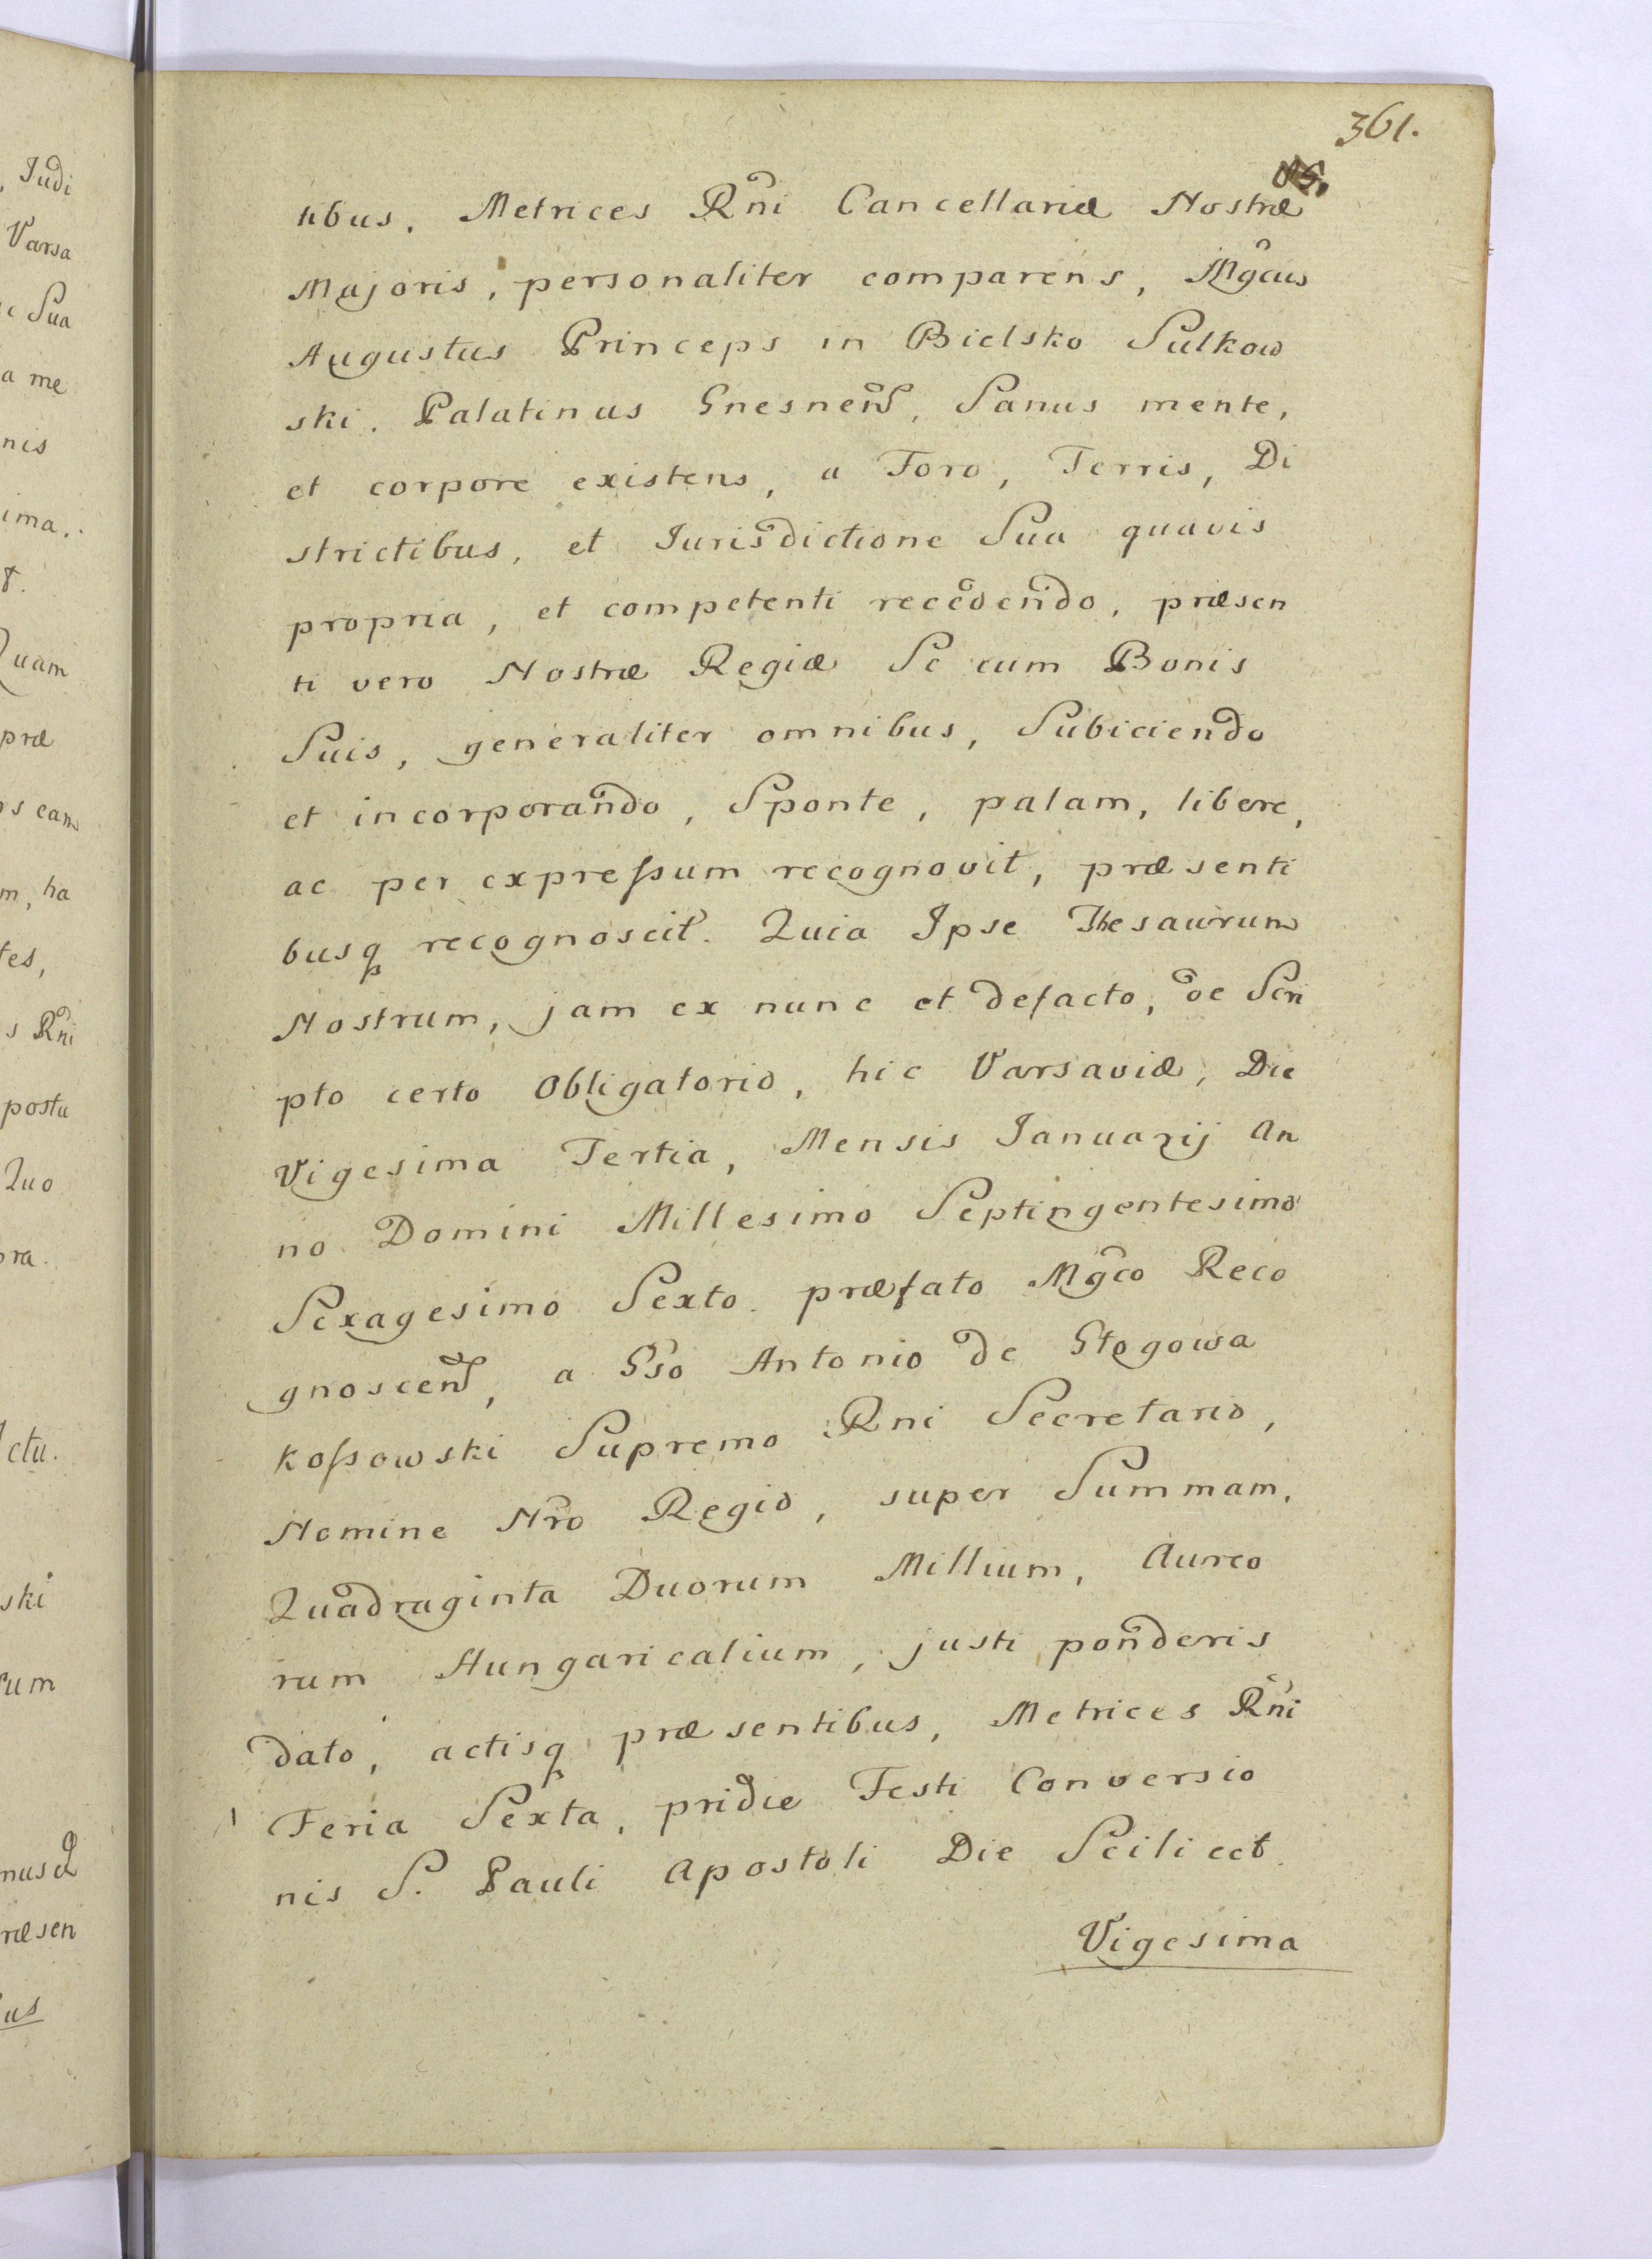 361.
tibus. Metrices Rñi Cancellariæ Nostræ
Majoris, personaliter comparens, Mg̃cus
Augustus Princeps in Bielsko Sulkow
ski. Palatinus Gnesneñ, Sanus mente,
et corpore existens, a Foro, Terris, Di
strictibus, et Iurisdictione Sua quavis
propria, et competenti recedendo, præsen
ti vero Nostræ Regiæ Se cum Bonis
Suis, generaliter omnibus, Subiciendo
et incorporando, Sponte, palam, libere,
ac per expreſsum recognovit, præsenti
busq recognoscit. Quia Ipse Thesaurum
Nostrum, jam ex nunc et defacto, de Scri
pto certo Obligatorio, hic Varsaviæ, Die
Vigesima Tertia, Mensis Ianuarij An
no Domini Millesimo Septingentesimo
Sexagesimo Sexto. præfato Mg̃co Reco
gnosceñ, a Gso Antonio de Głogowa
Koſsowski Supremo Rni Secretario,
Nomine Nro Regio, super Summam,
Quadraginta Duorum Millium, Aureo
rum Hungaricalium, justi ponderis
dato, actisq præsentibus, Metrices Rñi
Feria Sexta, pridie Festi Conversio
nis S. Pauli Apostoli Die Scilicet
Vigesima
Iudi
Varsa
Sua
a me
nis
ima.
Quam
præ
s eam
m, ha
tes,
s Rñi
postu
Quo
ra.
ctu.
ski
um
ræsen
us